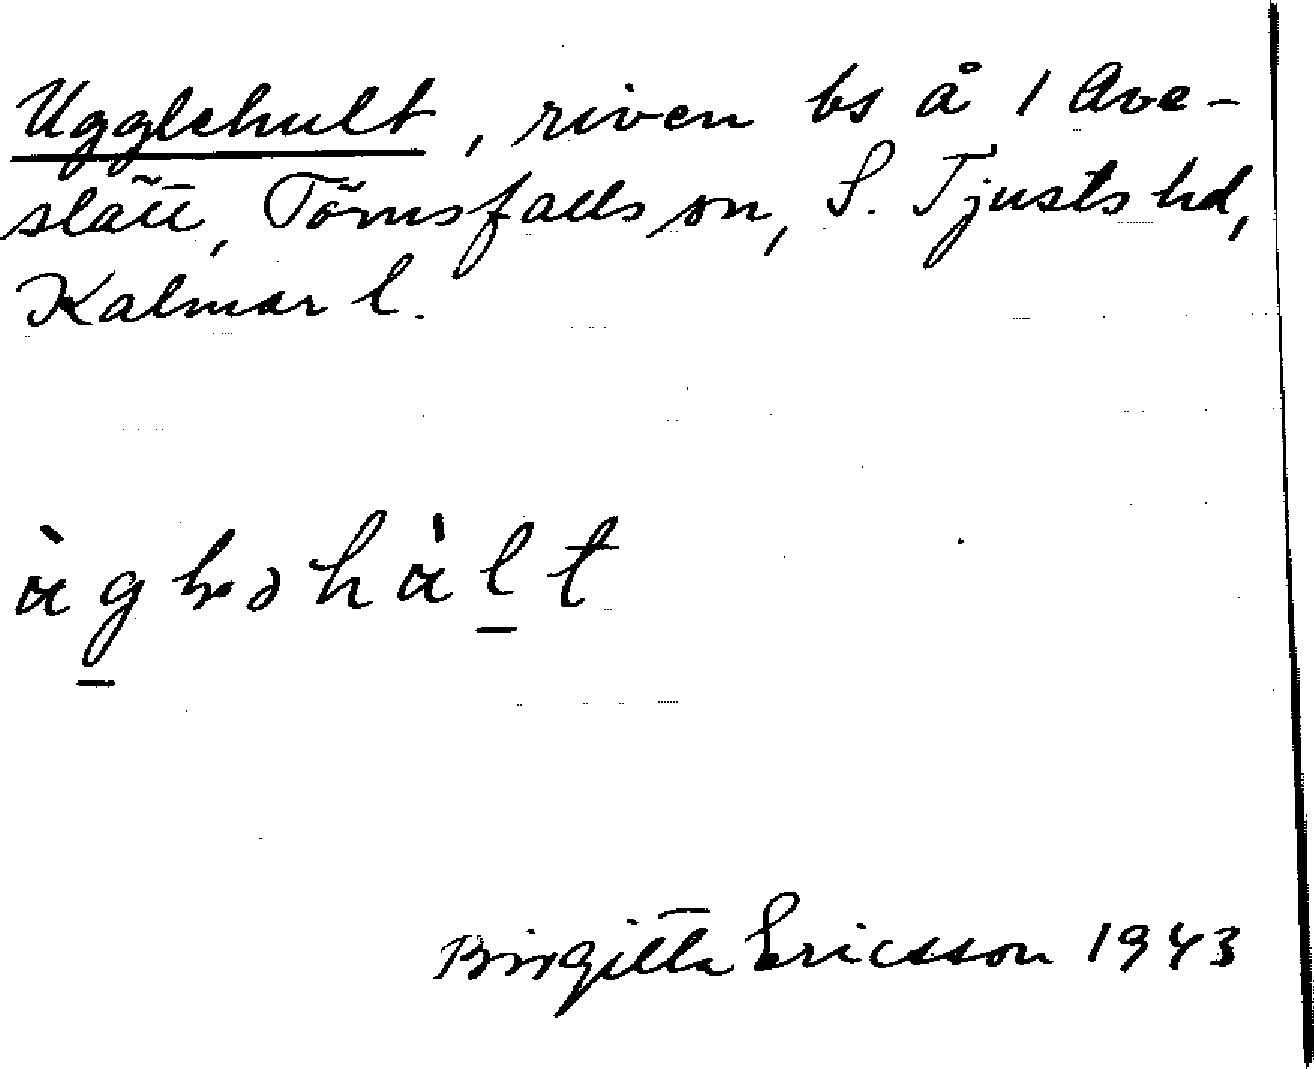 Ugglehult, riven bs å 1 Ave-
slätt, Törnsfalls sn, S. Tjusts hd,
Kalmar l.
Birgitta Ericsson 1943